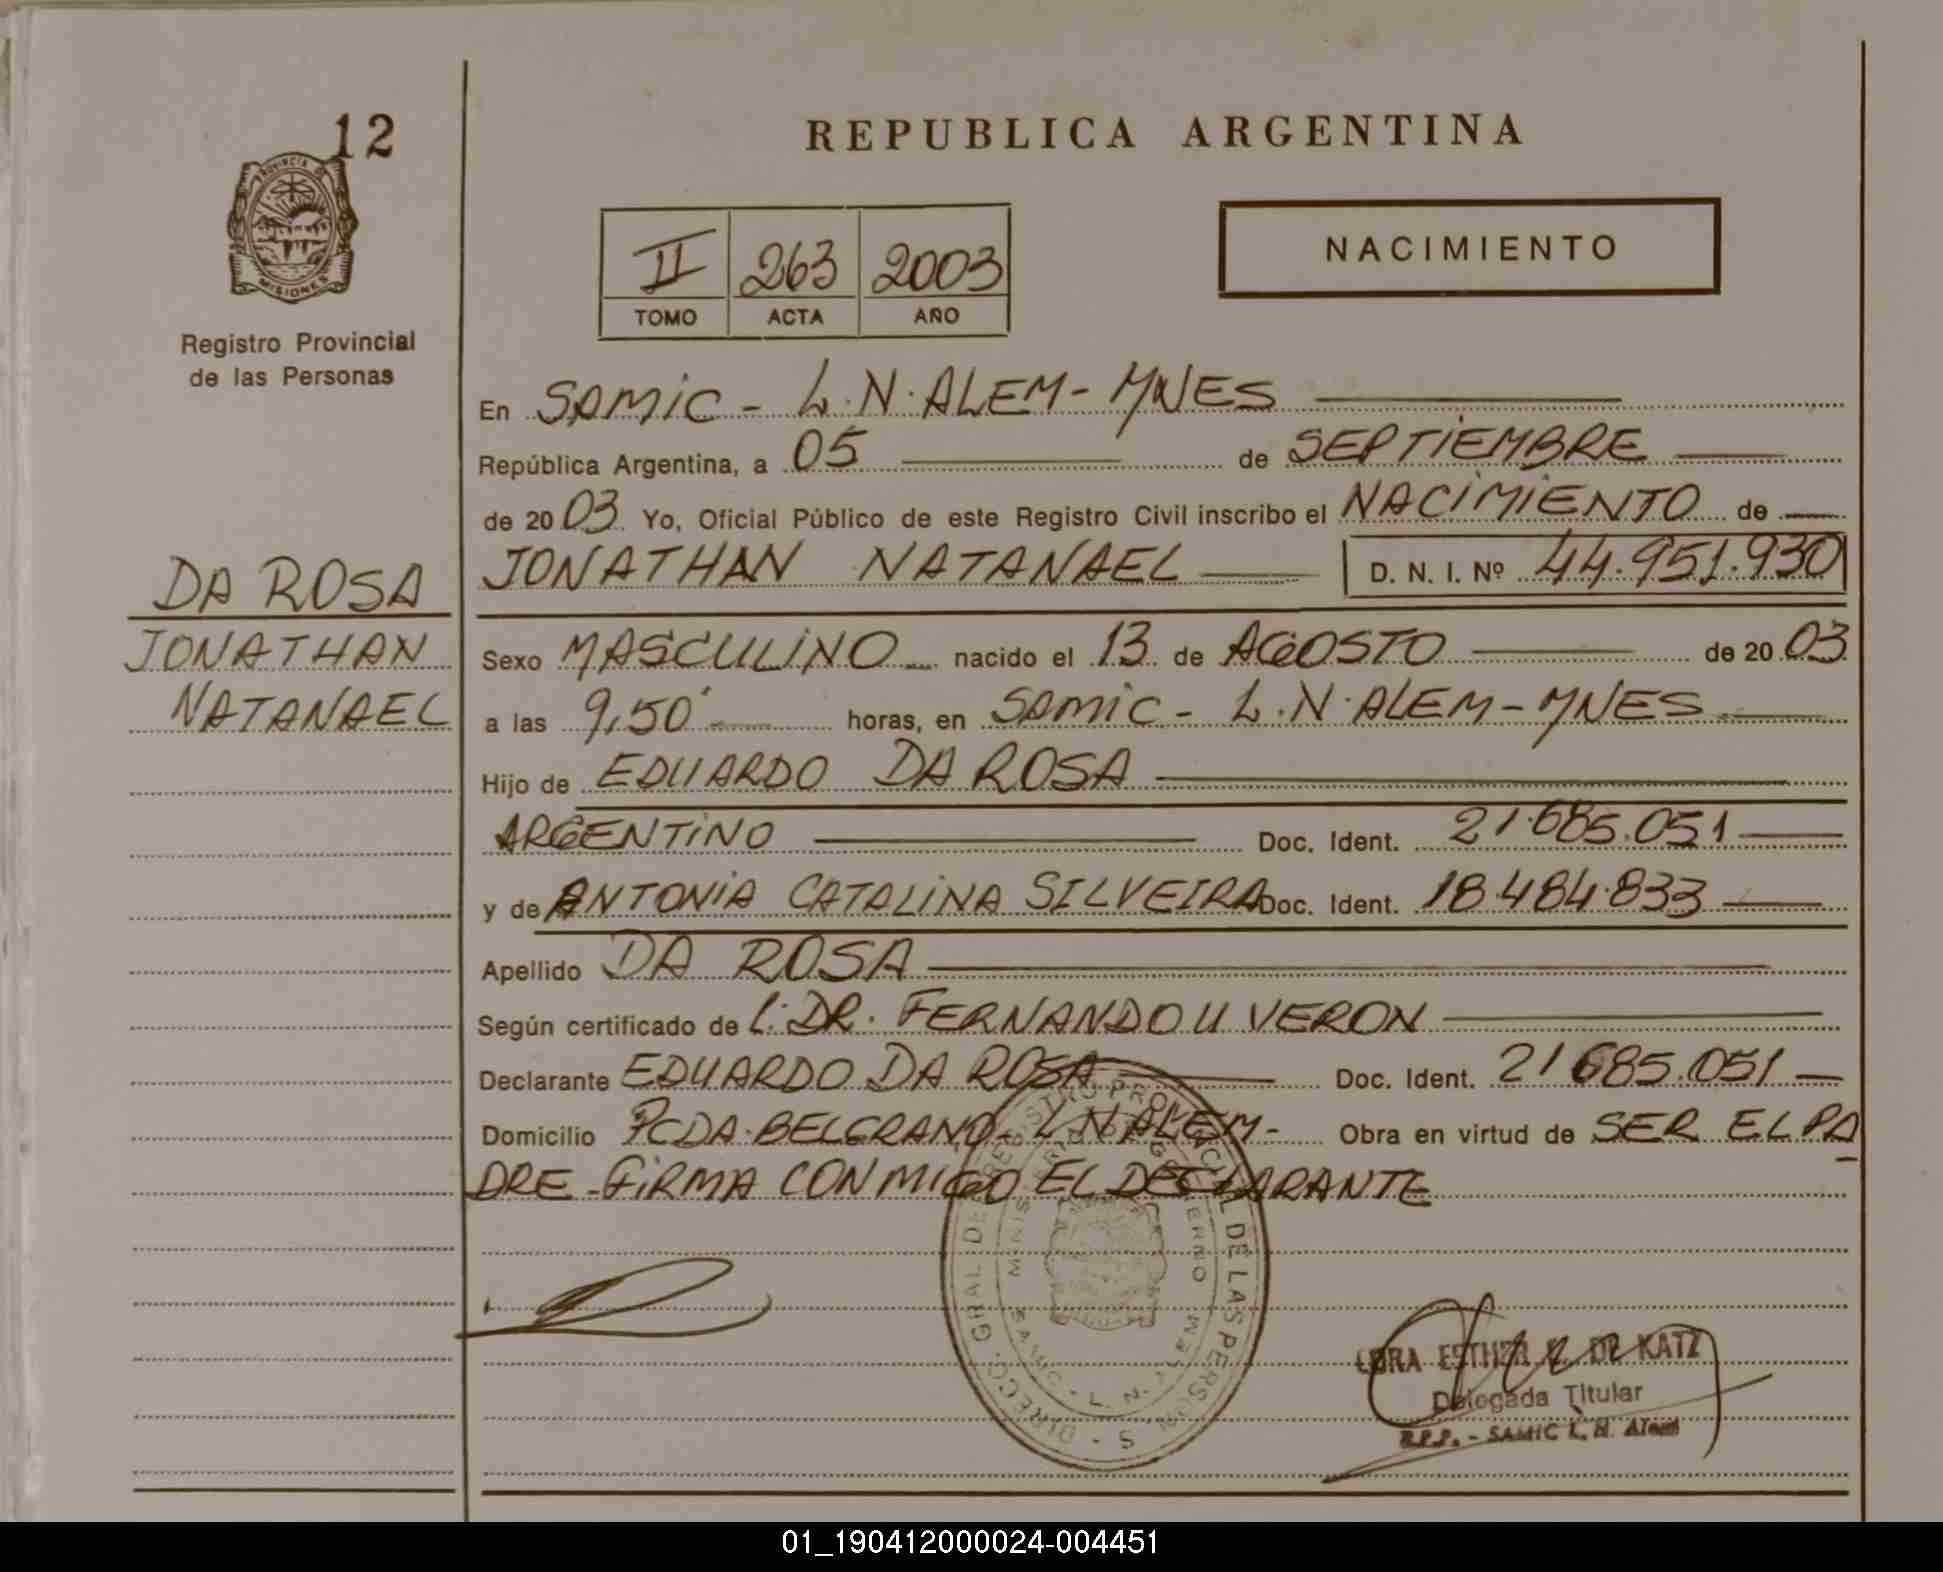 12
PROVINCIA DE
MISIONES
Registro Provincial
de las Personas
DA ROSA
JONATHAN
NATANAEL
REPUBLICA ARGENTINA
II 263 2003
TOMO ACTA AÑO
NACIMIENTO
En SAMIC - L.N. ALEM - MNES
República Argentina, a 05 de SEPTIEMBRE
de 2003 Yo, Oficial Público de este Registro Civil inscribo el NACIMIENTO de
JONATHAN NATANAEL D. N. I. Nº 44.951.930
Sexo MASCULINO nacido el 13 de AGOSTO de 2003
a las 9,50' horas, en SAMIC - L.N. ALEM - MNES
Hijo de EDUARDO DA ROSA
ARGENTINO Doc. Ident. 21.685.051
y de ANTONIA CATALINA SILVEIRA Doc. Ident. 18.484.833
Apellido DA ROSA
Según certificado de l. DR. FERNANDO U VERON
Declarante EDUARDO DA ROSA Doc. Ident. 21685.051
Domicilio PCDA. BELGRANO - L N ALEM - Obra en virtud de SER EL PA
DRE - FIRMA CONMIGO EL DECLARANTE
DIRECC. GRAL DE REGISTRO PROVINCIAL DE LAS PERSONAS
SAMIC - L. N. ALEM
ESTHER DE KATZ
Delegada Titular
R.P.P. - SAMIC L. N. Alem
01_190412000024-004451